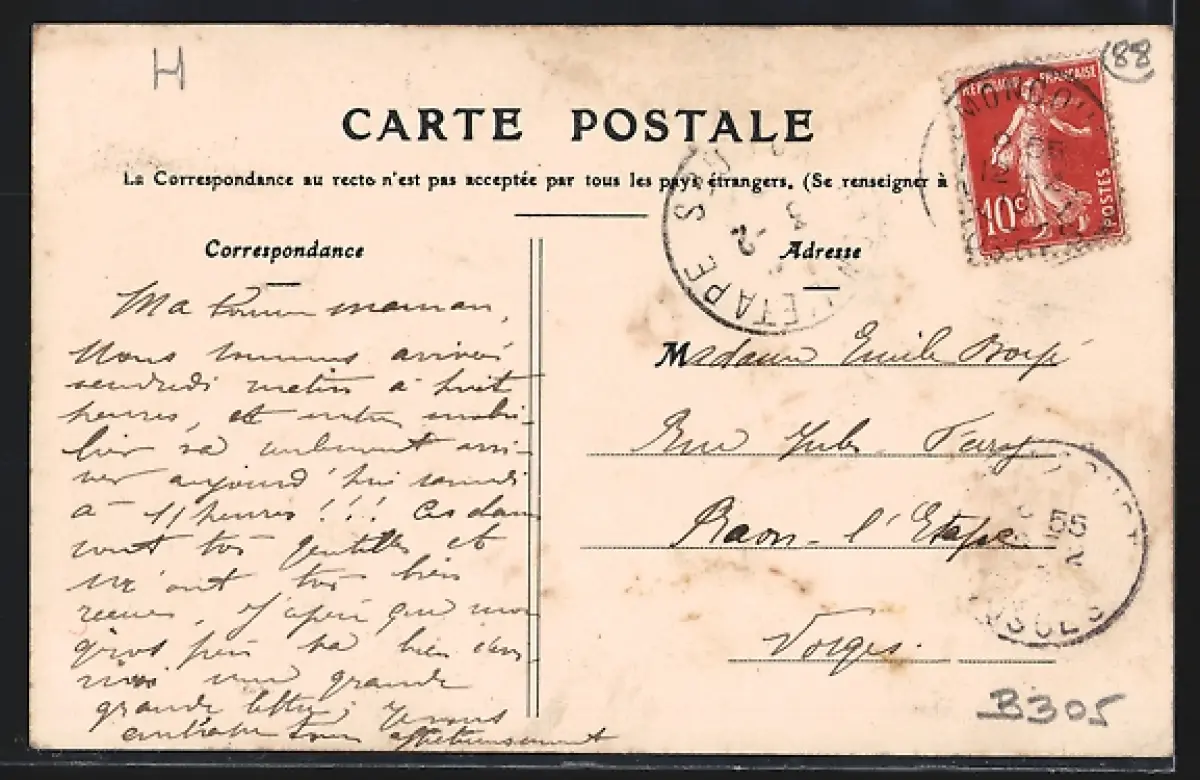 H
88
CARTE POSTALE
La Correspondance au recto n'est pas acceptée par tous les pays étrangers. (Se renseigner à
RÉPUBLIQUE FRANÇAISE
10c
POSTES
L'ETAPE
Correspondance
Adresse
Ma bonne maman,
Nous sommes arrivés
vendredi matin à huit
heures, et notre mobi-
lier va seulement arri-
ver aujourd'hui samedi
à 11 heures!!! Ces dames
sont très gentilles et
m'ont très bien
reçue. J'espère que mon
gros père va bien
une grande
grande lettre; Je vous
embrasse tous affectueusement
Madame Emile
Rue Jules Ferry
Raon-l'Etape
Vosges.
55
VOSGES
B305